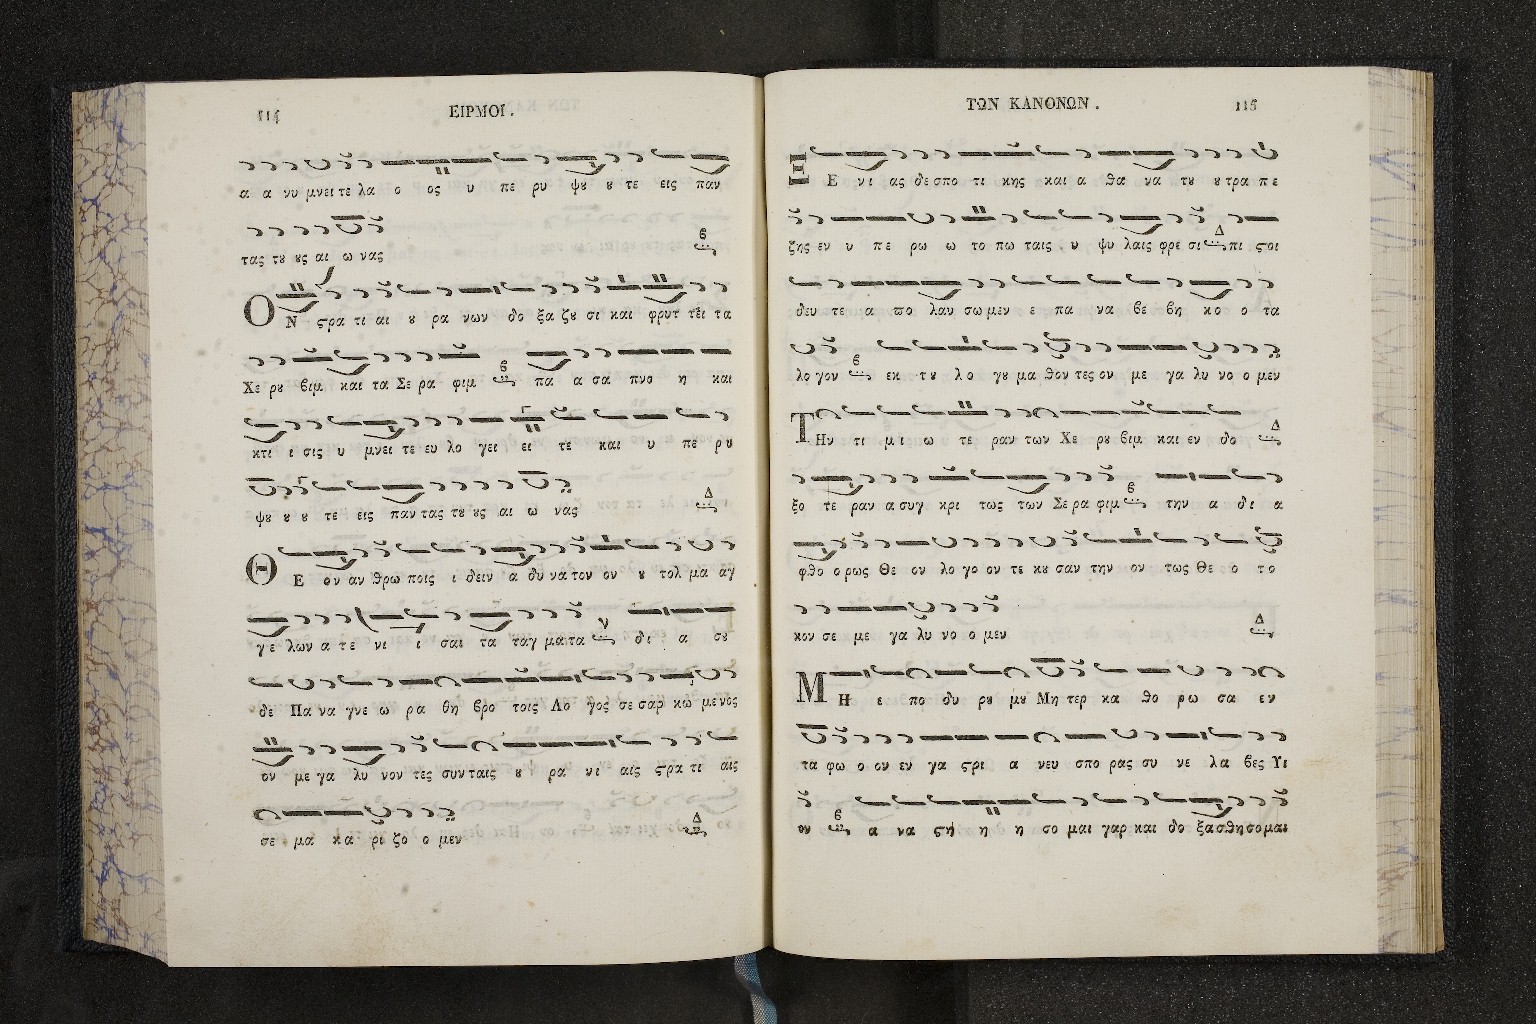 114 ΕΙΡΜΟΙ.
α α νυ μνει τε λα ο ος υ πε ρυ ψȣ ȣ τε εις παν
τας τȣ ȣς αι ω νας
ΟΝ ϛρα τι αι ȣ ρα νων δο ξα ζȣ σι και φρυτ τει τα
Χε ρȣ βιμ και τα Σε ρα φιμ πα α σα πνο η και
κτι ι σις υ μνει τε ευ λο γει ει τε και υ πε ρυ
ψȣ ȣ ȣ τε εις παν τας τȣ ȣς αι ω νας
ΘΕ ον αν θρω ποις ι δειν α δυ να τον ον ȣ τολ μα αγ
γε λων α τε νι ι σαι τα ταγ μα τα δι α σȣ
δε Πα να γνε ω ρα θη βρο τοις Λο γος σε σαρ κω μενος
ον με γα λυ νον τες συν ταις ȣ ρα νι αις ϛρα τι αις
σε μα κα ρι ζο ο μεν
ΤΩΝ ΚΑΝΟΝΩΝ. 115
ΞΕ νι ας δε σπο τι κης και α θα να τȣ ȣ τρα πε
ζης εν υ πε ρω ω το πω ταις υ ψυ λαις φρε σι πι ϛοι
δευ τε α πο λαυ σω μεν ε πα να βε βη κο ο τα
λο γον εκ τȣ λο γȣ μα θον τες ον με γα λυ νο ο μεν
ΤΗν τι μι ω τε ραν των Χε ρȣ βιμ και εν δο
ξο τε ραν α συγ κρι τως των Σε ρα φιμ την α δι α
φθο ο ρως Θε ον λο γο ον τε κȣ σαν την ον τως Θε ο το
κον σε με γα λυ νο ο μεν
ΜΗ ε πο δυ ρȣ μȣ Μη τερ κα θο ρω σα εν
τα φω ο ον εν γα ϛρι α νευ σπο ρας συ νε λα βες Υι
ον α να ϛη η η σο μαι γαρ και δο ξασθησομαι